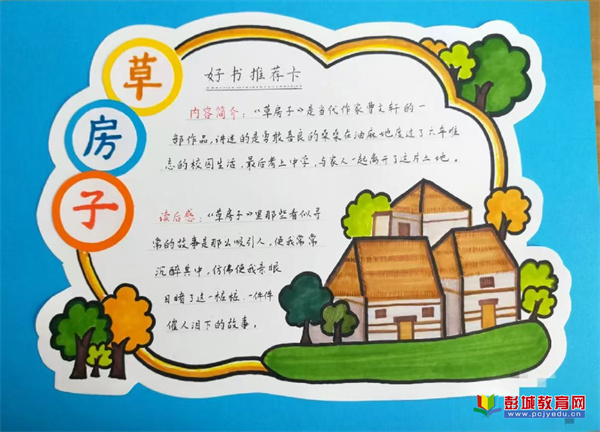 草
房
子
好书推荐卡
内容简介：《草房子》是当代作家曹文轩的一
部作品，讲述的是勇敢善良的桑桑在油麻地度过了六年难
忘的校园生活，最后考上中学，与家人一起离开了这片土地。
读后感：《草房子》里那些看似寻
常的故事是那么吸引人，使我常常
沉醉其中，仿佛使我亲眼
目睹了这一桩桩、一件件
催人泪下的故事。
彭城教育网
www.pcjyedu.cn